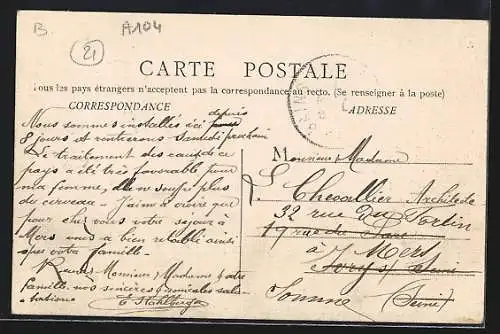 B.
A104
21
CARTE POSTALE
Tous les pays étrangers n'acceptent pas la correspondance au recto. (Se renseigner à la poste)
CORRESPONDANCE
ADRESSE
Nous sommes installés ici depuis
8 jours et rentrerons Samedi prochain
Le traitement des eaux de ce
pays a été très favorable pour
ma femme, elle ne souffre plus
du cerveau - J'aime à croire que
pour chez vous votre séjour à
Mers vous a bien rétabli ainsi
que votre famille.
Monsieur Madame & votre
famille nos sincères & amicales salu
tations
Monsieur Madame
L. Chevallier Architecte
32 rue
19 rue du
à Mers
Ivry s/ Seine
Somme (Seine)